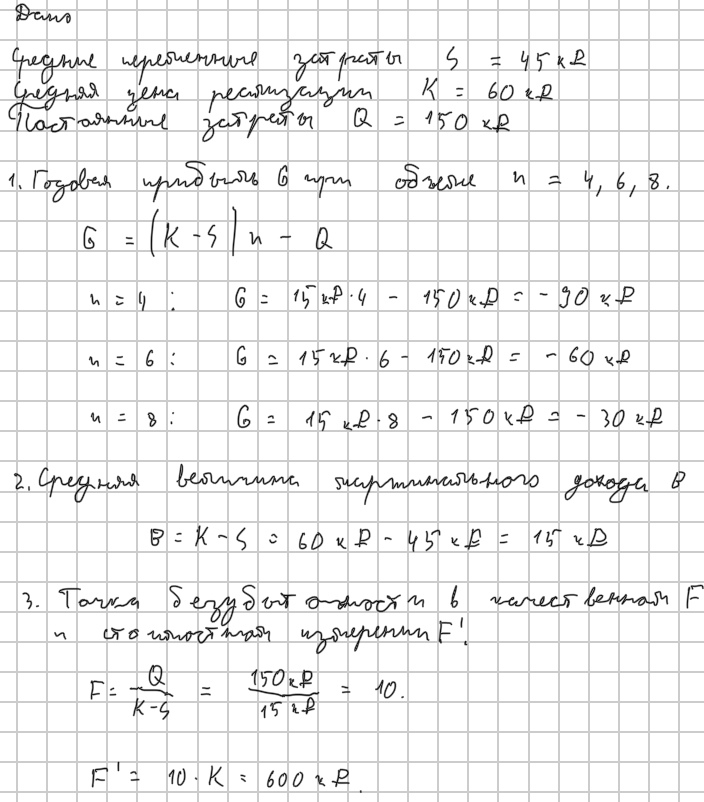 Дано
Средние переменные затраты S = 45к₽
Средняя цена реализации K = 60к₽
Постоянные затраты Q = 150к₽
1. Годовая прибыль G при объеме n = 4, 6, 8.
G = (K - S) n - Q
n = 4 : G = 15к₽·4 - 150к₽ = - 90 к₽
n = 6 : G = 15к₽·6 - 150к₽ = - 60 к₽
n = 8 : G = 15 к₽·8 - 150к₽ = - 30 к₽
2. Средняя величина маржинального дохода B
B = K - S = 60 к₽ - 45 к₽ = 15 к₽
3. Точка безубыточности в качественном F
и стоимостном измерении F'.
F = Q / (K-S) = 150к₽ / 15к₽ = 10.
F' = 10 · K = 600к₽.